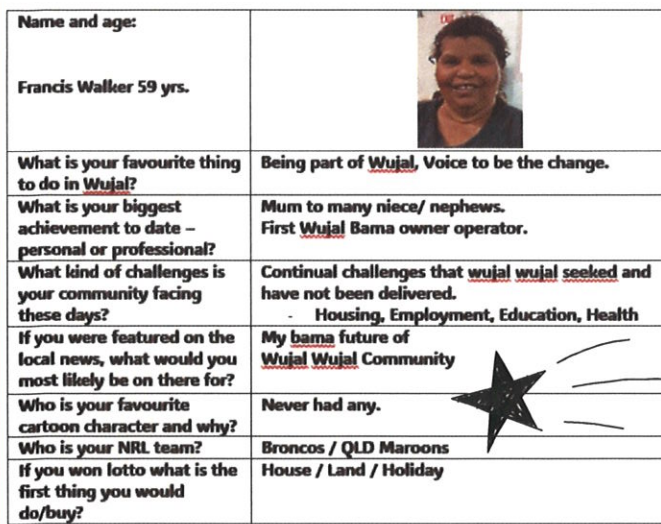 Name and age:
Francis Walker 59 yrs.
What is your favourite thing
to do in Wujal?
Being part of Wujal, Voice to be the change.
What is your biggest
achievement to date –
personal or professional?
Mum to many niece/ nephews.
First Wujal Bama owner operator.
What kind of challenges is
your community facing
these days?
Continual challenges that wujal wujal seeked and
have not been delivered.
- Housing, Employment, Education, Health
If you were featured on the
local news, what would you
most likely be on there for?
My bama future of
Wujal Wujal Community
Who is your favourite
cartoon character and why?
Never had any.
Who is your NRL team?
Broncos / QLD Maroons
If you won lotto what is the
first thing you would
do/buy?
House / Land / Holiday